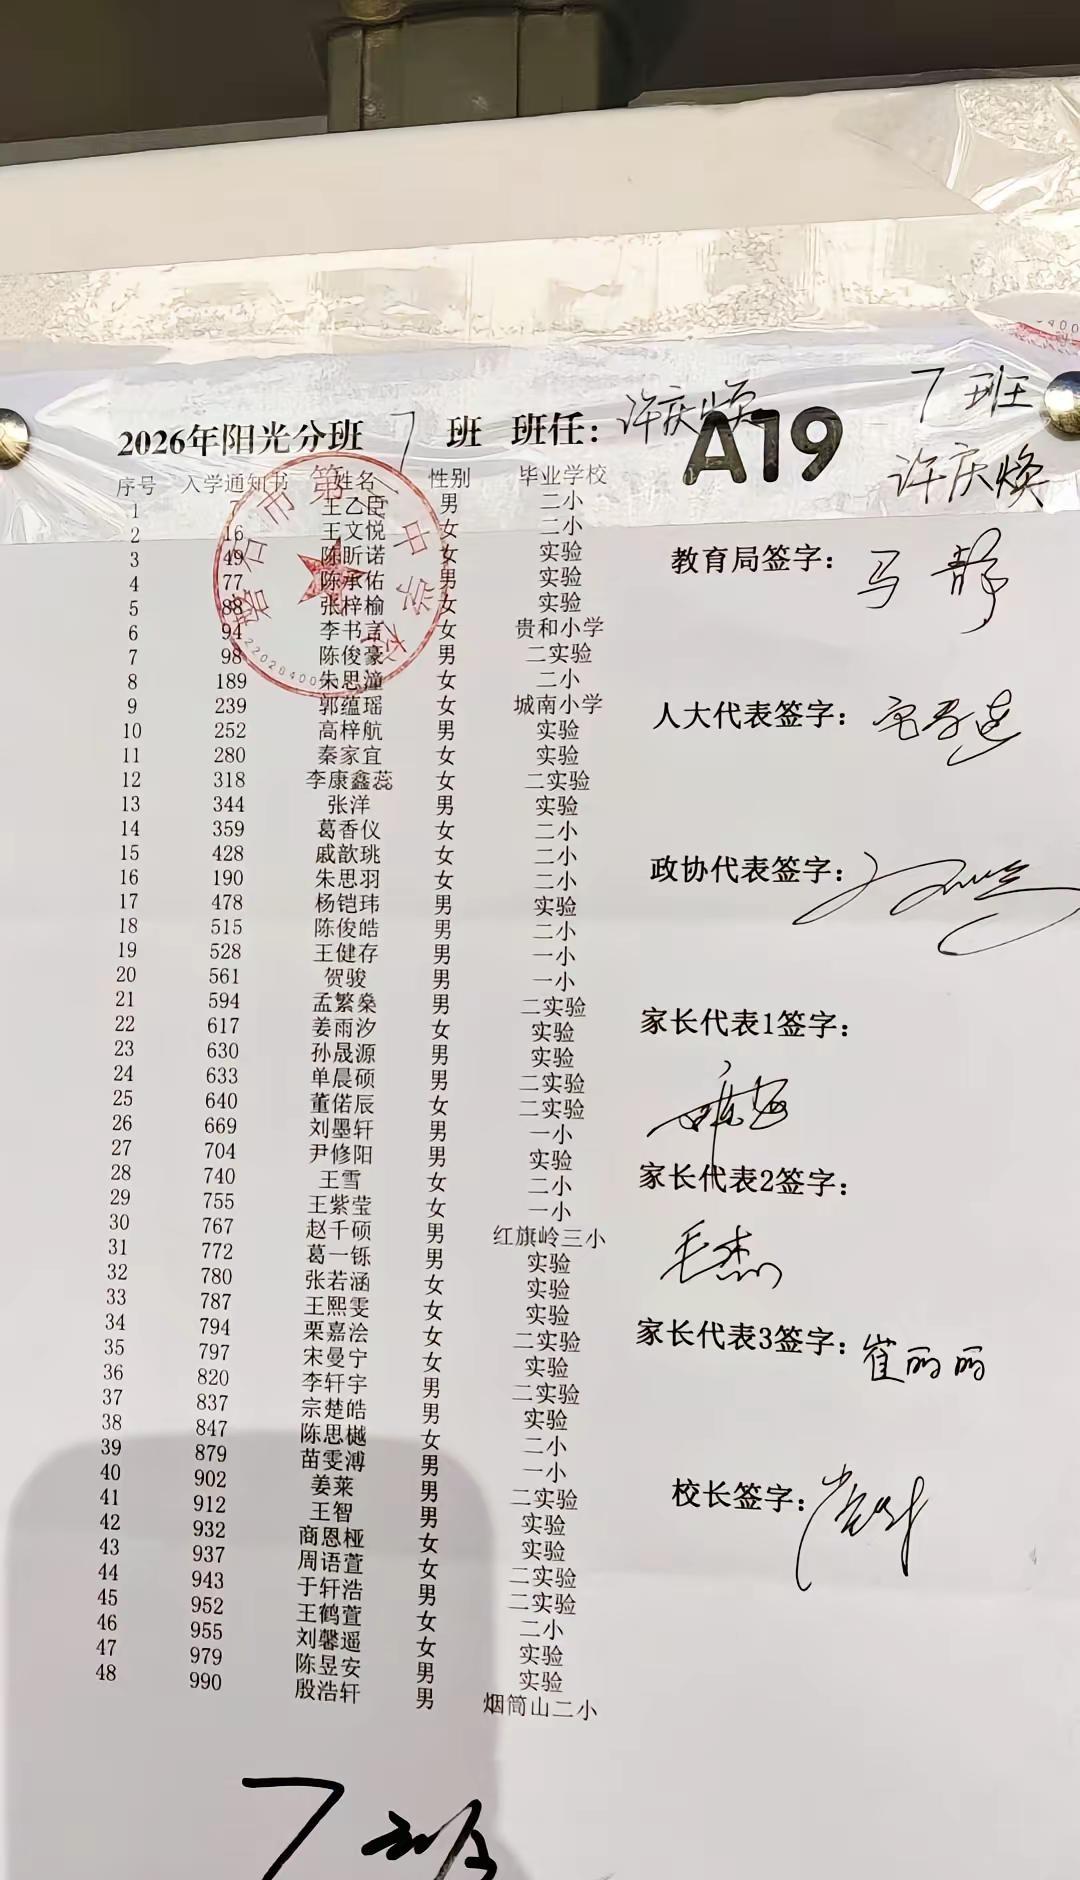 2026年阳光分班 7 班 班任：许庆焕
A19
7班
许庆焕
序号 入学通知书 姓名 性别 毕业学校
1 7 王乙臣 男 二小
2 16 王文悦 女 二小
3 49 陈昕诺 女 实验
4 77 陈承佑 男 实验
5 88 张梓榆 女 实验
6 94 李书言 女 贵和小学
7 98 陈俊豪 男 二实验
8 189 朱思潼 女 二小
9 239 郭蕴瑶 女 城南小学
10 252 高梓航 男 实验
11 280 秦家宜 女 实验
12 318 李康鑫蕊 女 二实验
13 344 张洋 男 实验
14 359 葛香仪 女 二小
15 428 戚歆珧 女 二小
16 190 朱思羽 女 二小
17 478 杨铠玮 男 实验
18 515 陈俊皓 男 二小
19 528 王健存 男 一小
20 561 贺骏 男 一小
21 594 孟繁燊 男 二实验
22 617 姜雨汐 女 实验
23 630 孙晟源 男 实验
24 633 单晨硕 男 二实验
25 640 董偌辰 女 二实验
26 669 刘墨轩 男 一小
27 704 尹修阳 男 实验
28 740 王雪 女 二小
29 755 王紫莹 女 一小
30 767 赵千硕 男 红旗岭三小
31 772 葛一铄 男 实验
32 780 张若涵 女 实验
33 787 王熙雯 女 实验
34 794 栗嘉浍 女 二实验
35 797 宋曼宁 女 实验
36 820 李轩宇 男 二实验
37 837 宗楚皓 男 实验
38 847 陈思樾 女 二小
39 879 苗雯溥 男 一小
40 902 姜莱 男 二实验
41 912 王智 男 实验
42 932 商恩桠 女 实验
43 937 周语萱 女 二实验
44 943 于轩浩 男 二实验
45 952 王鹤萱 女 二小
46 955 刘馨遥 女 实验
47 979 陈昱安 男 实验
48 990 殷浩轩 男 烟筒山二小
教育局签字：马静
人大代表签字：
政协代表签字：
家长代表1签字：
家长代表2签字：
毛杰
家长代表3签字：崔丽丽
校长签字：
7班